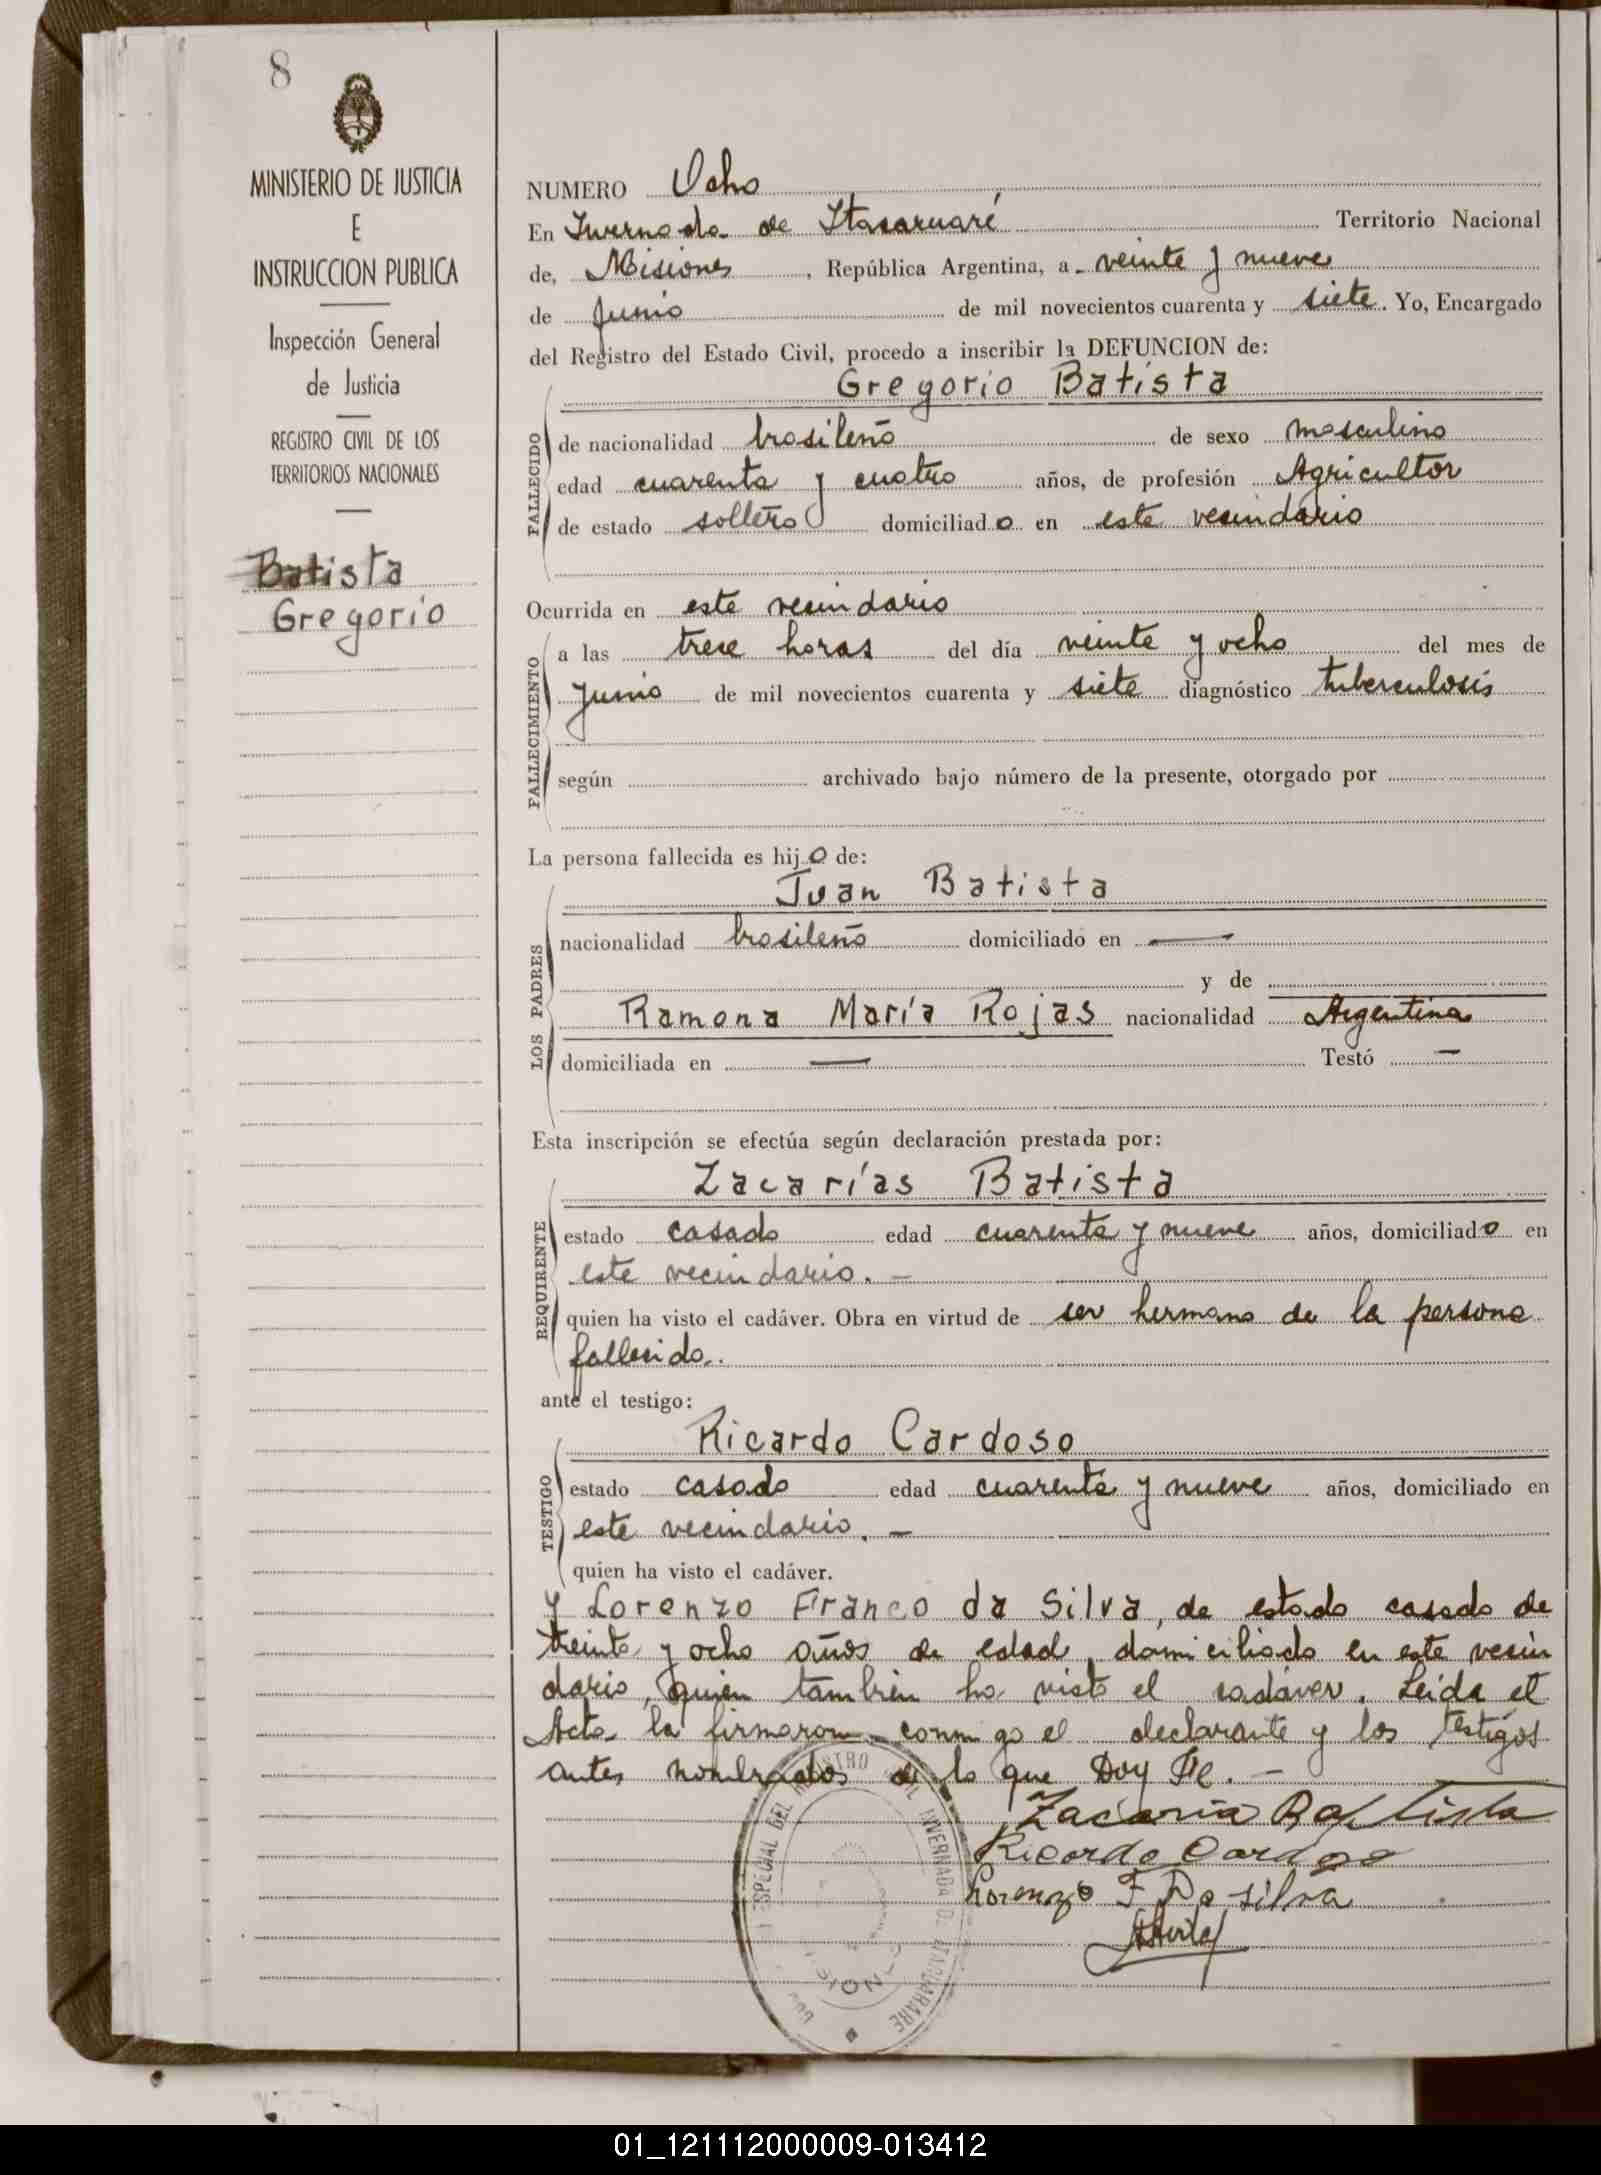 8
MINISTERIO DE JUSTICIA
E
INSTRUCCION PUBLICA
Inspección General
de Justicia
REGISTRO CIVIL DE LOS
TERRITORIOS NACIONALES
Batista
Gregorio
NUMERO Ocho
En Invernada de Itacaruaré Territorio Nacional
de, Misiones, República Argentina, a veinte y nueve
de Junio de mil novecientos cuarenta y siete. Yo, Encargado
del Registro del Estado Civil, procedo a inscribir la DEFUNCION de:
Gregorio Batista
FALLECIDO
de nacionalidad brasileño de sexo masculino
edad cuarenta y cuatro años, de profesión Agricultor
de estado soltero domiciliado en este vecindario
Ocurrida en este vecindario
FALLECIMIENTO
a las trece horas del día veinte y ocho del mes de
Junio de mil novecientos cuarenta y siete diagnóstico tuberculosis
según archivado bajo número de la presente, otorgado por
La persona fallecida es hijo de:
Juan Batista
LOS PADRES
nacionalidad brasileño domiciliado en —
y de
Ramona María Rojas nacionalidad Argentina
domiciliada en — Testó —
Esta inscripción se efectúa según declaración prestada por:
Zacarías Batista
REQUIRENTE
estado casado edad cuarenta y nueve años, domiciliado en
este vecindario. —
quien ha visto el cadáver. Obra en virtud de ser hermano de la persona
fallecida.
ante el testigo:
Ricardo Cardoso
TESTIGO
estado casado edad cuarenta y nueve años, domiciliado en
este vecindario. —
quien ha visto el cadáver.
y Lorenzo Franco da Silva, de estado casado de
treinta y ocho años de edad, domiciliado en este vecin
dario, quien también ha visto el cadáver. Leída el
Acta la firmaron conmigo el declarante y los testigos
antes nombrados de lo que Doy Fe. —
Zacaria Batista
Ricardo Cardozo
Lorenzo F Da silva
ESPECIAL DEL REGISTRO CIVIL INVERNADA DE ITACARUARE
MISIONES
01_121112000009-013412